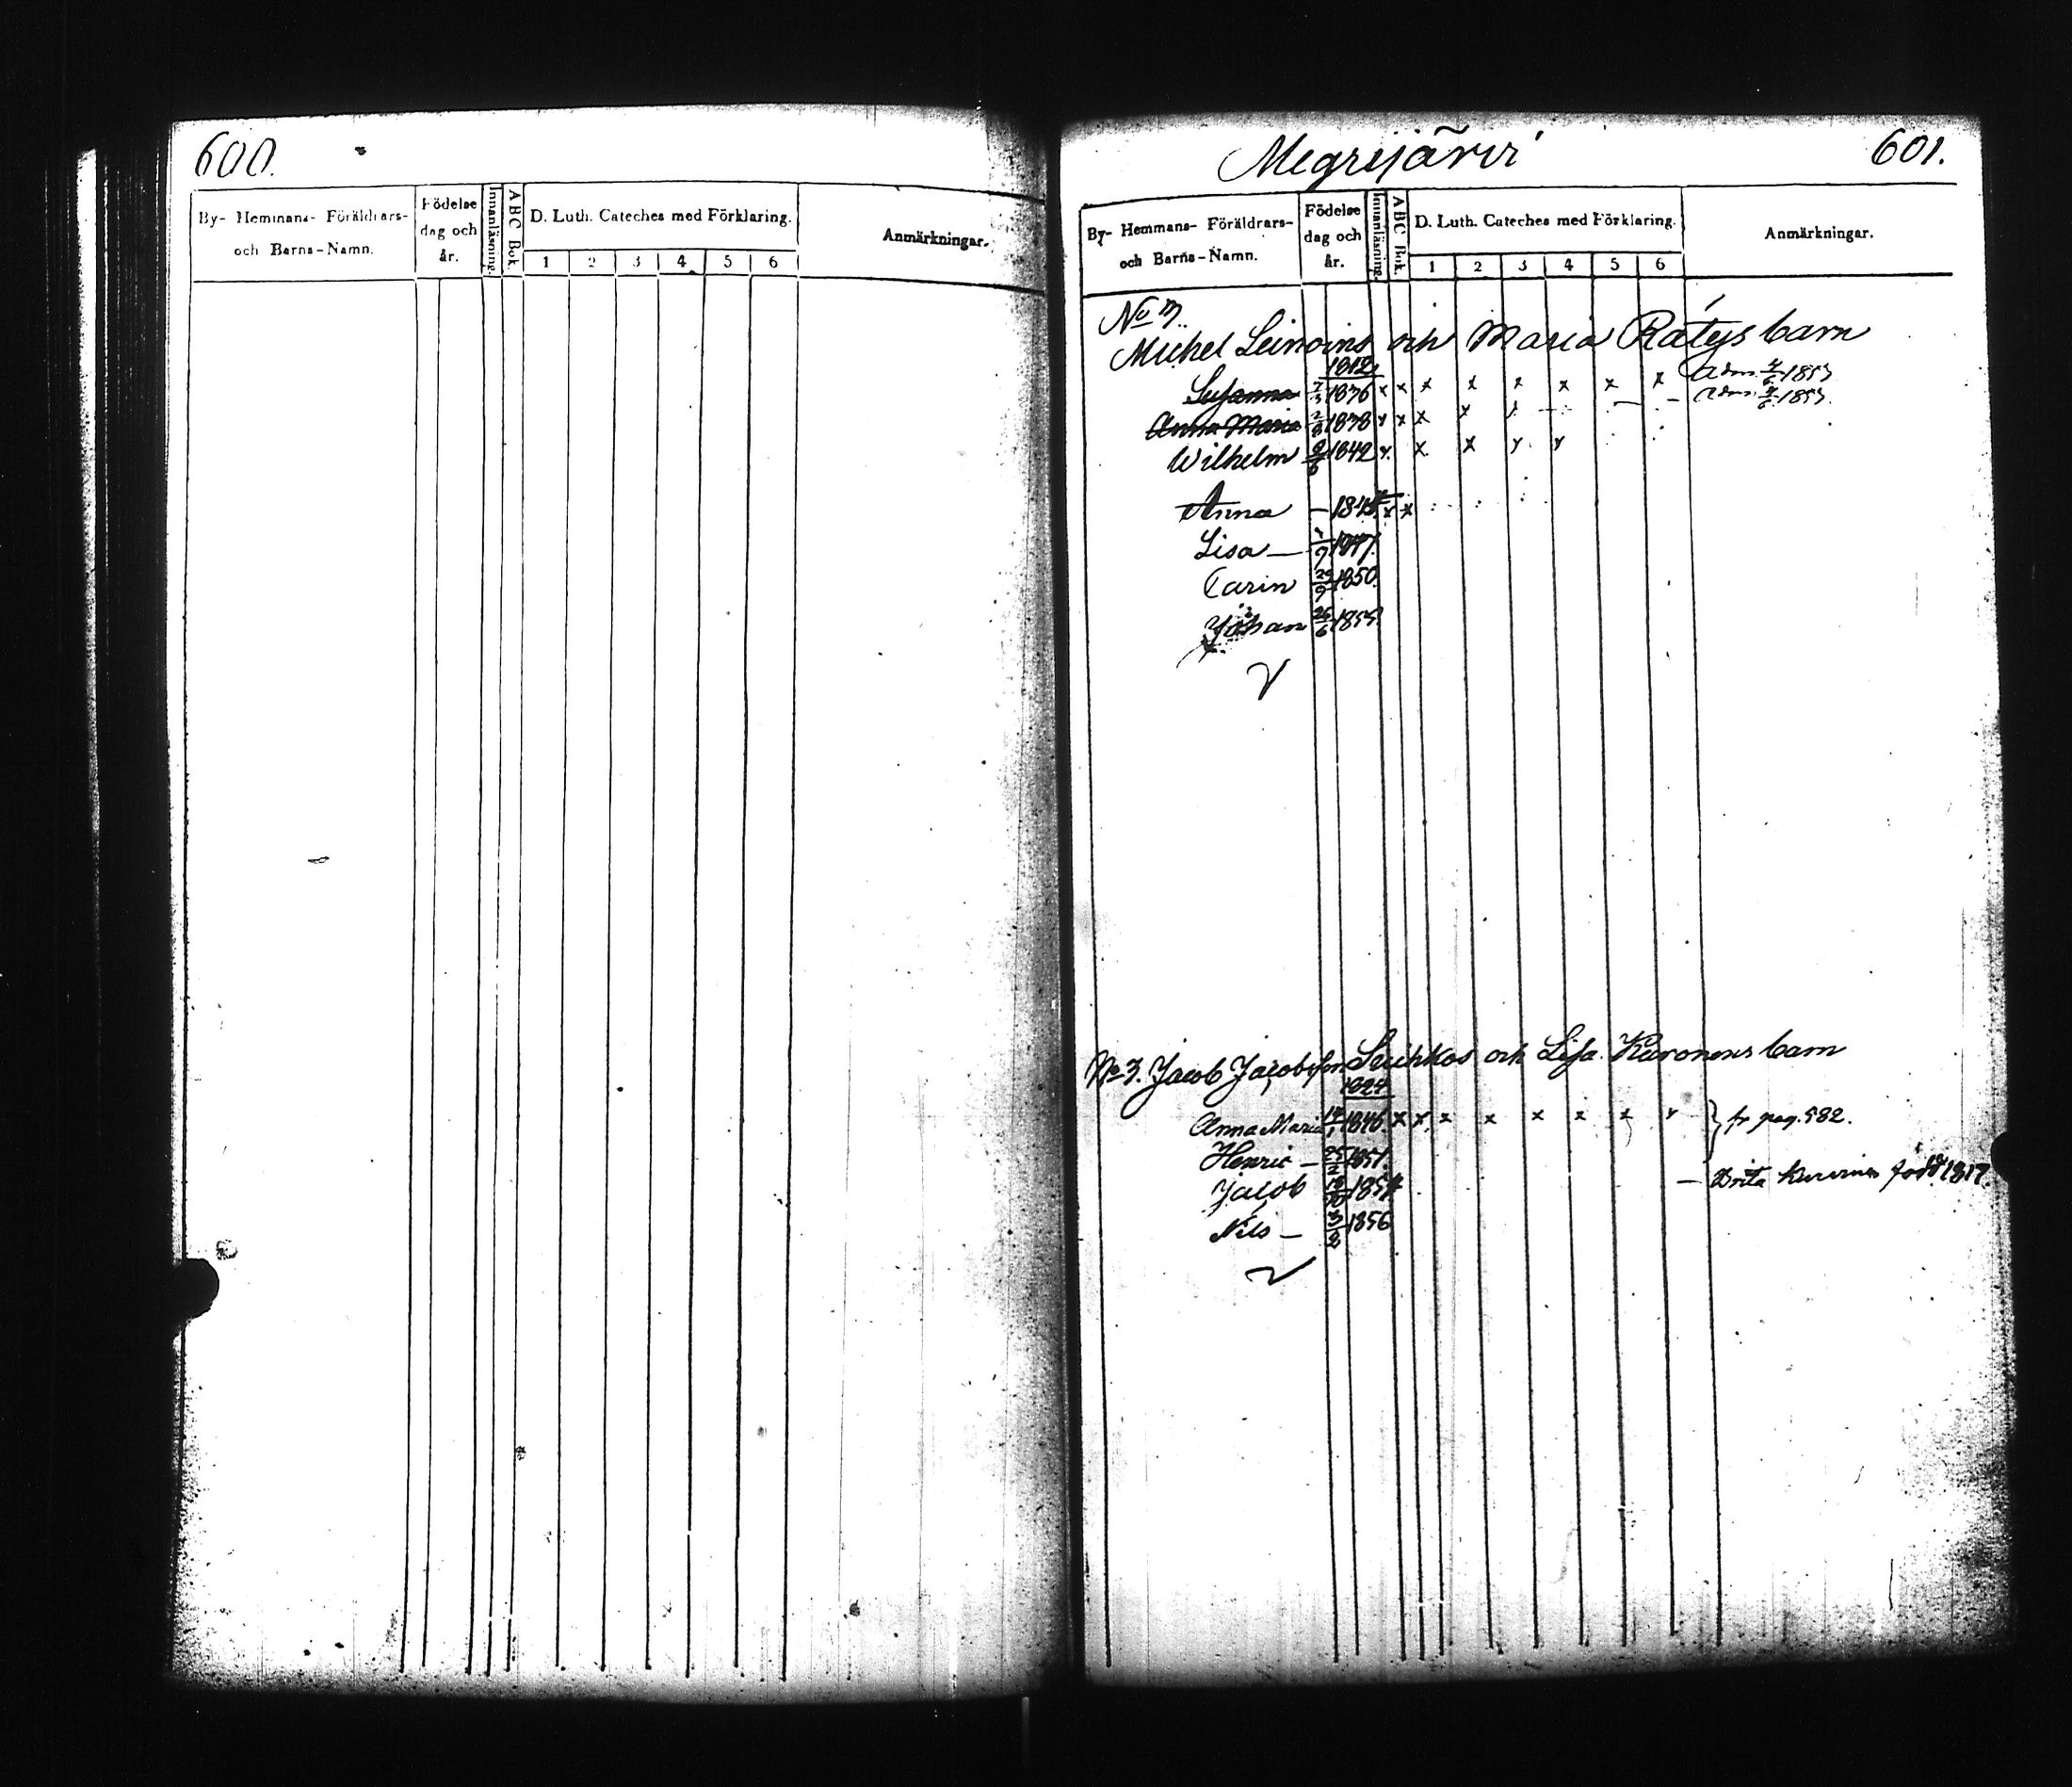 600.
By- Hemmans- Föräldrars-
och Barns-Namn.
Födelse
dag och
år.
Innanläsning.
ABC Bok.
D. Luth. Cateches med Förklaring.
1 2 3 4 5 6
Anmärkningar.
Megrijärvi 601.
By- Hemmans- Föräldrars-
och Barns-Namn.
Födelse
dag och
år.
Innanläsning.
ABC Bok.
D. Luth. Cateches med Förklaring.
1 2 3 4 5 6
Anmärkningar.
No 3.
Michel Leinoins och Maria Rätys barn
1812
Susanna 1836 x x x x x x x x Adm. 4/6 1853
Anna Maria 2/8 1838 x x x x Adm. 4/6 1853.
Wilhelm 1842 x x x x x
Anna — x x
Lisa — 1847.
Carin 1850.
Johan 26/6
No 3. Jacob Jacobsson och Lisa Kuronens barn
1824
Anna Maria 1846 x x x x x x x x fr pag. 582.
Henric — 25/2 1851.
Jacob — Brita född 1817.
Nils — 3/2 1856